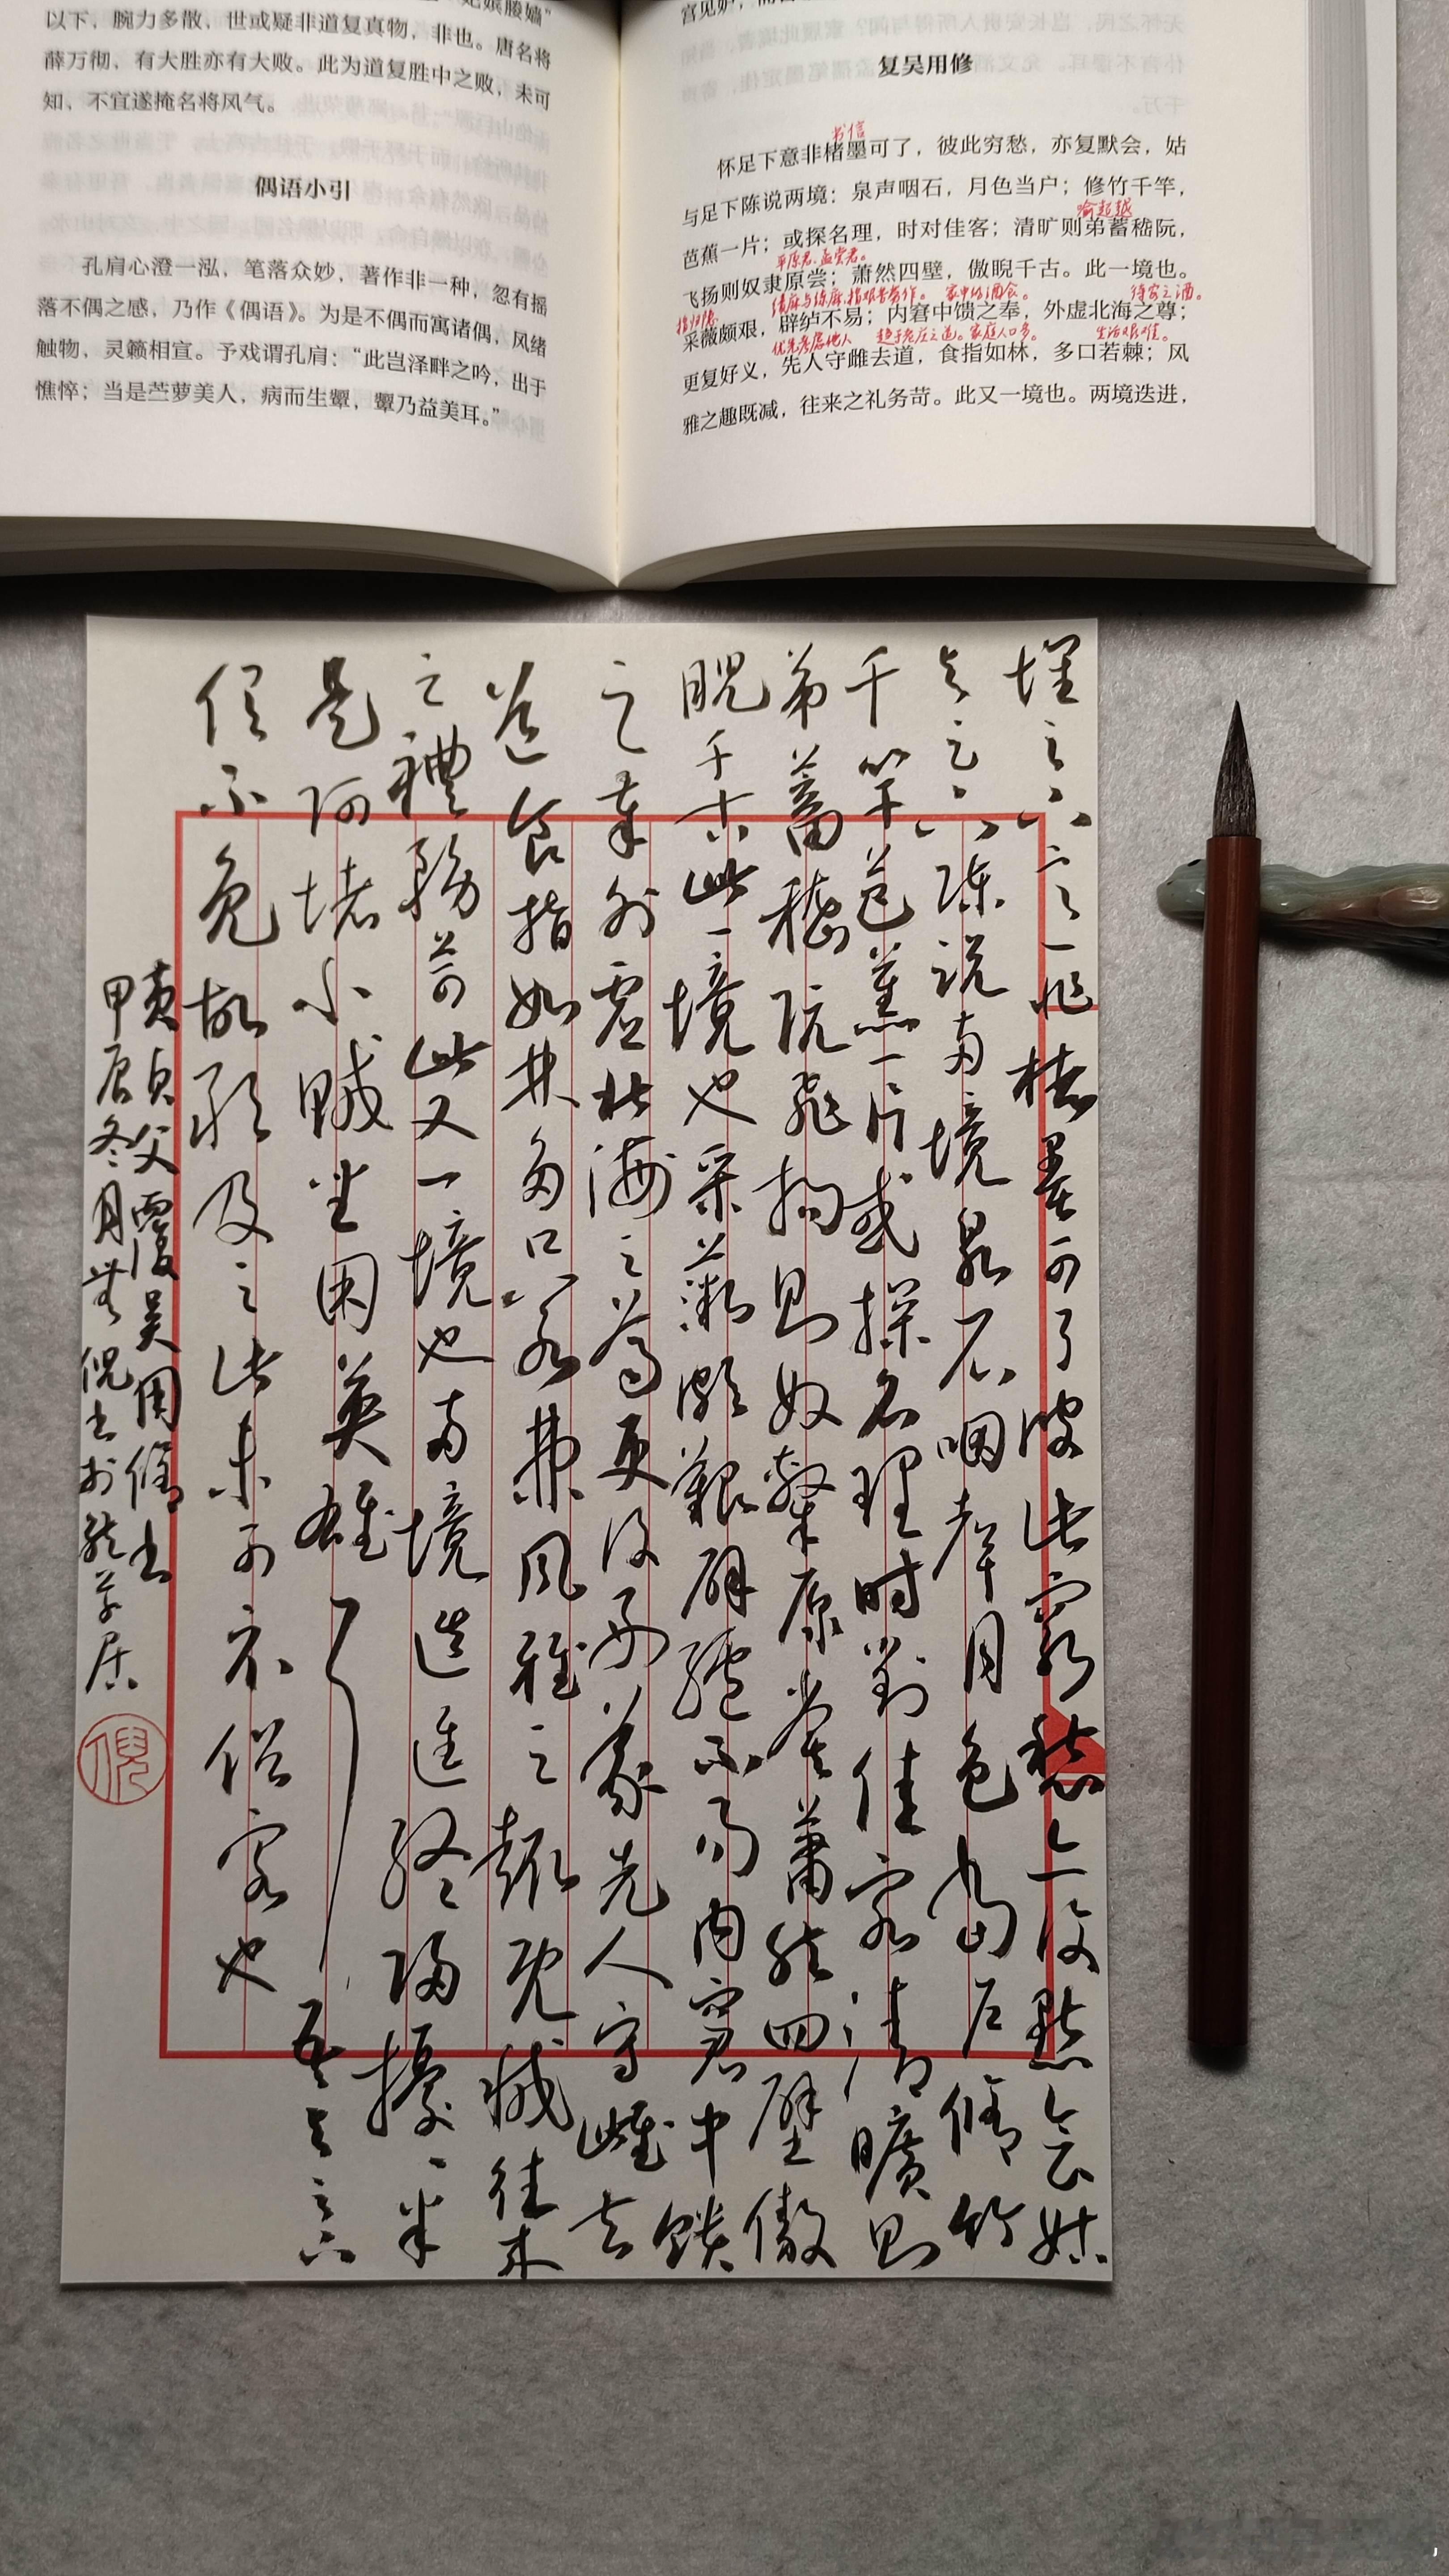 以下，腕力多散，世或疑非道复真物，非也。唐名将
薛万彻，有大胜亦有大败。此为道复胜中之败，未可
知，不宜遂掩名将风气。
偶语小引
孔肩心澄一泓，笔落众妙，著作非一种，忽有摇
落不偶之感，乃作《偶语》。为是不偶而寓诸偶，风绪
触物，灵籁相宣。予戏谓孔肩：“此岂泽畔之吟，出于
憔悴；当是苎萝美人，病而生颦，颦乃益美耳。”
复吴用修
书信
怀足下意非楮墨可了，彼此穷愁，亦复默会，姑
与足下陈说两境：泉声咽石，月色当户；修竹千竿，
喻超越
芭蕉一片；或探名理，时对佳客；清旷则弟蓄嵇阮，
平原君、孟尝君。
飞扬则奴隶原尝；萧然四壁，傲睨千古。此一境也。
绩麻与练麻，指艰苦劳作。 家中的酒食。 待客之酒。
指归隐
采薇颇艰，辟纑不易；内窘中馈之奉，外虚北海之尊；
优先考虑他人 趋于老庄之道。家庭人口多。 生活艰难。
更复好义，先人守雌去道，食指如林，多口若棘；风
雅之趣既减，往来之礼务苛。此又一境也。两境迭进，
足下意非楮墨可了彼此穷愁亦复默会姑
与足下陈说两境泉石咽声月色当户修竹
千竿芭蕉一片或探名理时对佳客清旷则
弟蓄嵇阮飛扬则奴隶原尝萧然四壁傲
睨千古此一境也采薇颇艱辟纑不易内窘中馈
之奉外虚北海之尊更復好義先人守雌去
道食指如林多口若棘风雅之趣既减往来
之禮務苛此又一境也两境迭進終歸擾一半
是阿堵小賊坐困英雄耳 吾足下
信不免故聊及之此未可示俗客也
黄貞父覆吴用修書
甲辰冬月 倪 書於 草居
倪